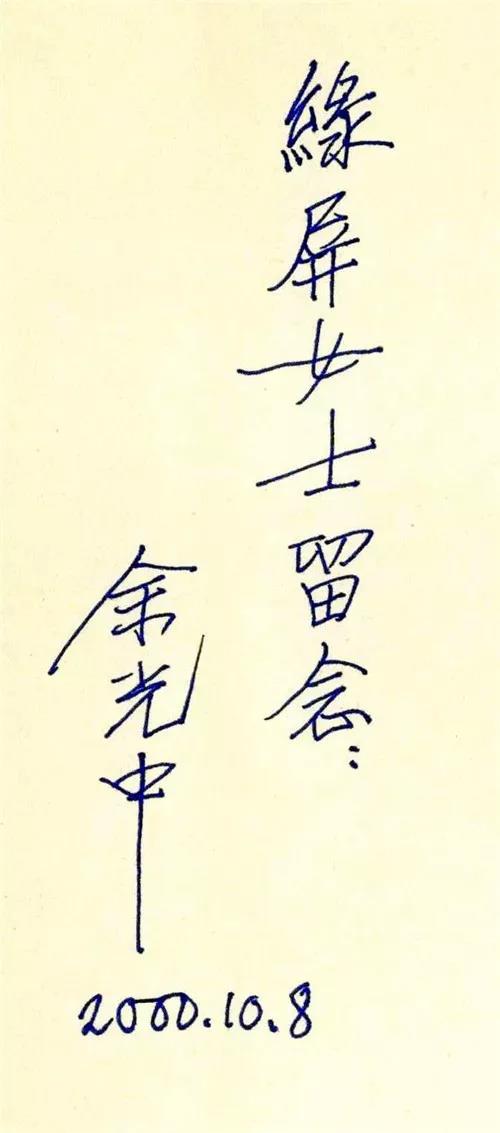 緣屏女士留念：
余光中
2000.10.8